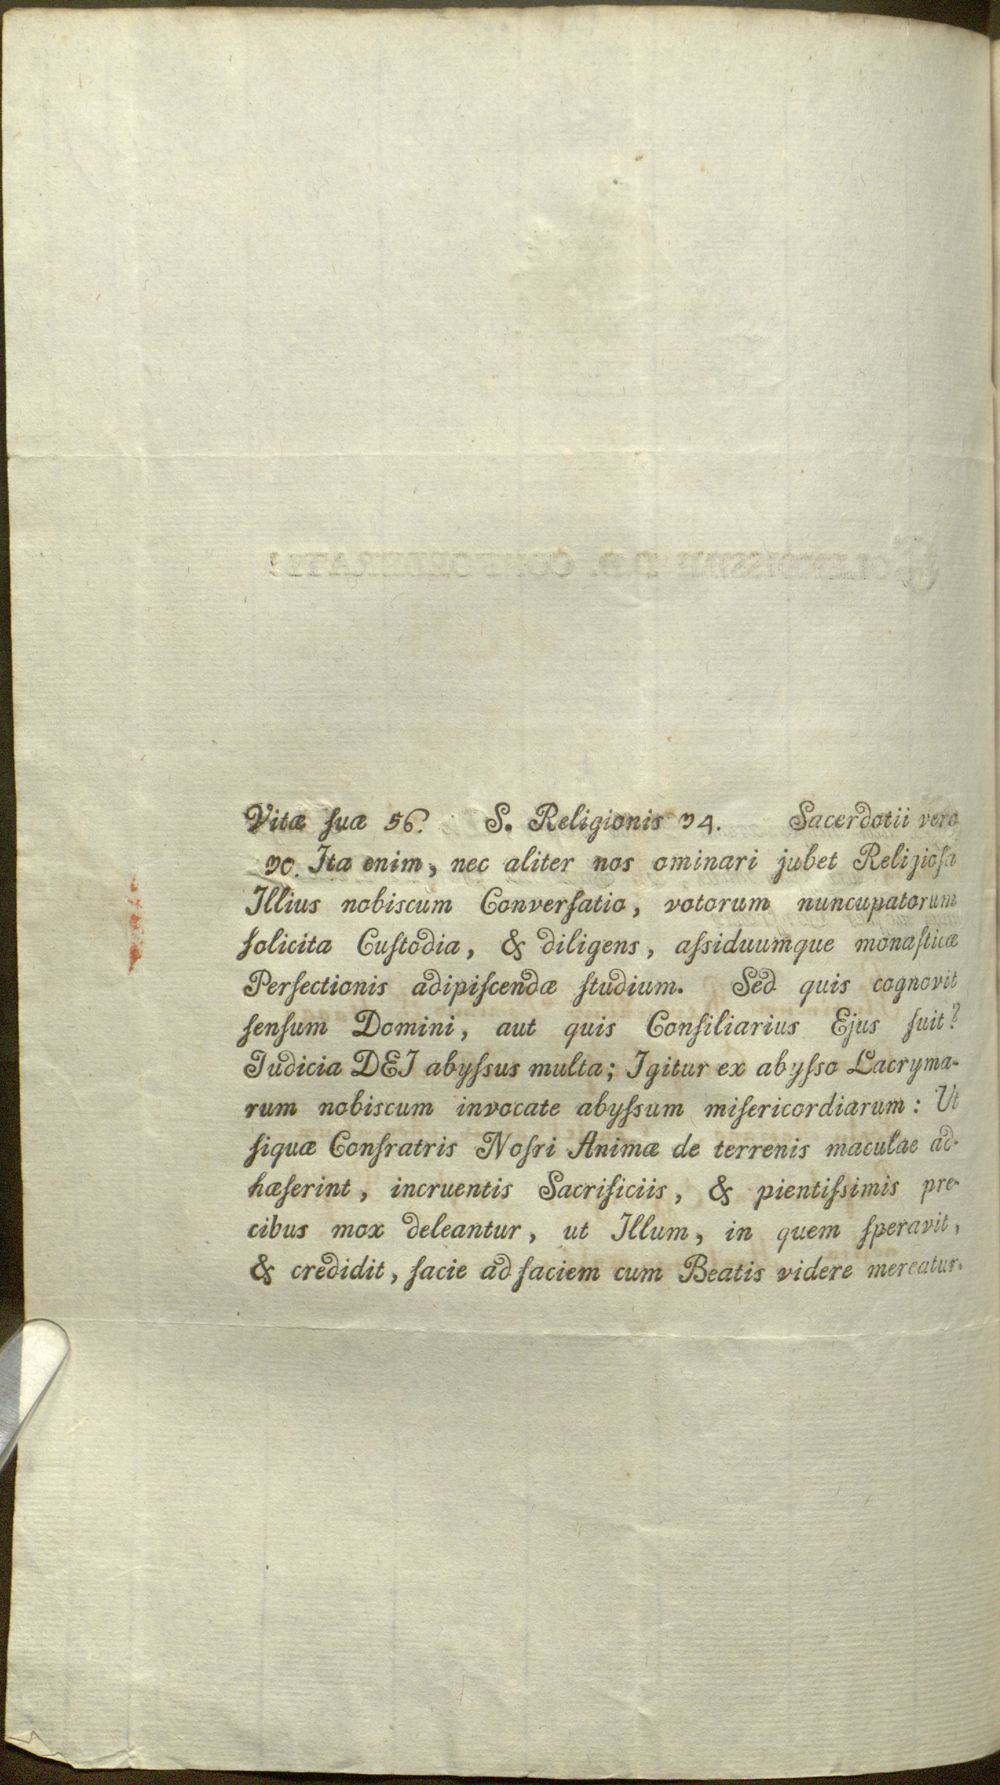 Vitæ ſuæ 56. S. Religionis 34. Sacerdotii vero
30. Ita enim, nec aliter nos ominari jubet Religioſa
Illius nobiscum Converſatio, votorum nuncupatorum
ſolicita Cuſtodia, & diligens, aſsiduumque monaſticæ
Perfectionis adipiſcendæ ſtudium. Sed quis cognovit
ſenſum Domini, aut quis Conſiliarius Ejus fuit?
Judicia DEI abyſsus multa; Igitur ex abyſso Lacryma-
rum nobiscum invocate abyſsum miſericordiarum: Ut
ſiquæ Confratris Noſri Animæ de terrenis maculae ad-
hæſerint, incruentis Sacrificiis, & pientiſsimis pre-
cibus mox deleantur, ut Illum, in quem ſperavit,
& credidit, facie ad faciem cum Beatis videre mereatur.